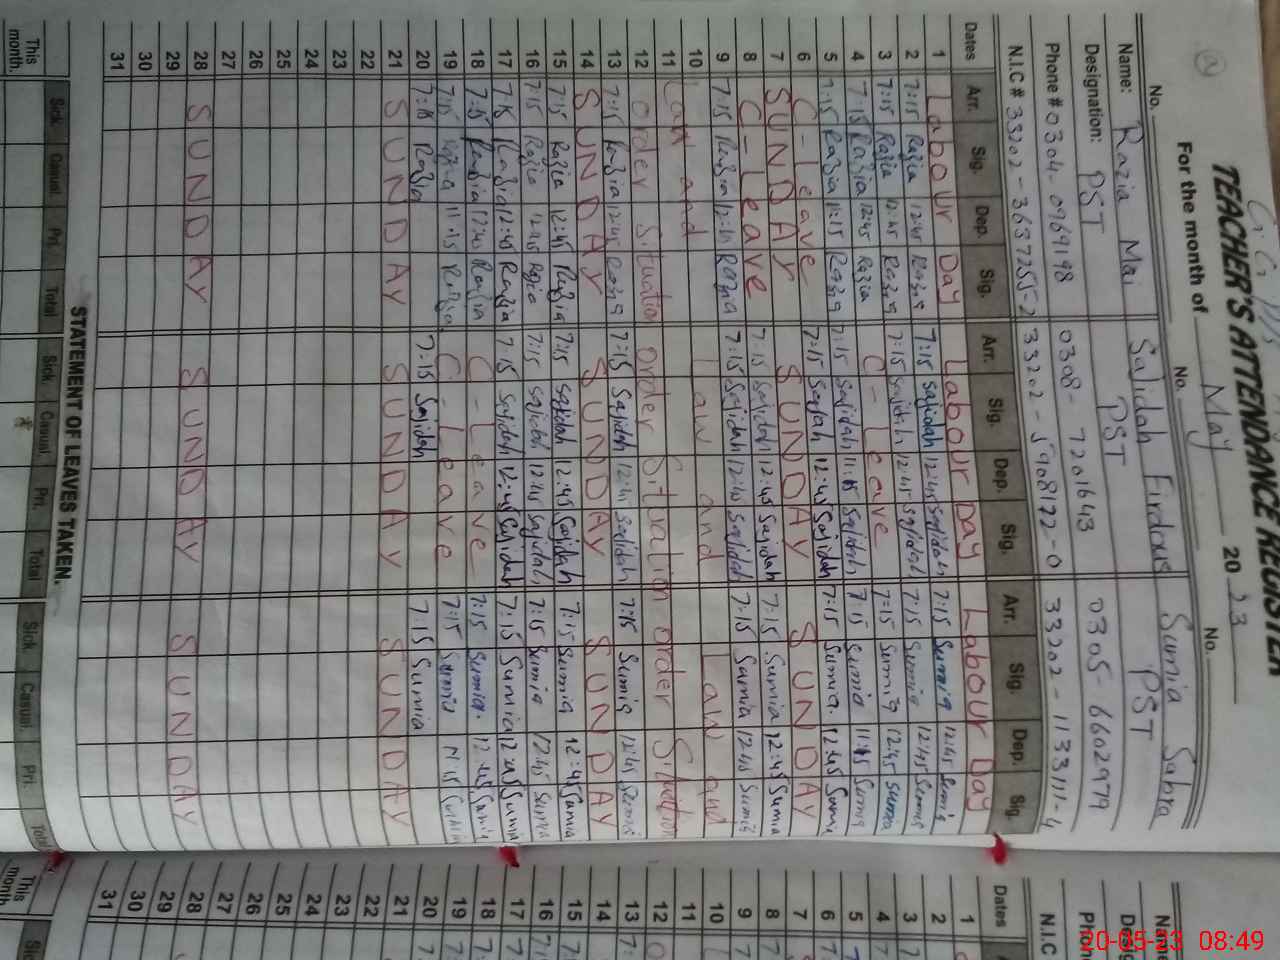 TEACHER'S ATTENDANCE REGISTER
For the month of May 2023
No. No. No.
Name: Razia Mai Sajidah Firdous Sumia Sabra
Designation: PST PST PST
Phone # 0304-0969198 0308-7201643 0305-6602979
N.I.C # 33202-3637255-2 33202-5908172-0 33202-1133111-4
Dates Arr. Sig. Dep. Sig. Arr. Sig. Dep. Sig. Arr. Sig. Dep. Sig.
1 Labour Day Labour Day Labour Day
2 7:15 Razia 12:45 Razia 7:15 Sajidah 12:45 Sajidah 7:15 Sumia 12:45 Sumia
3 7:15 Razia 12:45 Razia 7:15 Sajidah 12:45 Sajidah 7:15 Sumia 12:45 Sumia
4 7:15 Razia 12:45 Razia C-Leave 7:15 Sumia 12:45 Sumia
5 7:15 Razia 11:15 Razia 7:15 Sajidah 11:15 Sajidah 7:15 Sumia 11:15 Sumia
6 C-Leave 7:15 Sajidah 12:45 Sajidah 7:15 Sumia 12:45 Sumia
7 SUNDAY SUNDAY SUNDAY
8 C-Leave 7:15 Sajidah 12:45 Sajidah 7:15 Sumia 12:45 Sumia
9 7:15 Razia Razia 7:15 Sajidah 12:45 Sajidah 7:15 Sumia 12:45 Sumia
10 Law and Law and Law and
11
12 order Situation order Situation order Situation
13 7:15 Razia 12:45 Razia 7:15 Sajidah Sajidah 7:15 Sumia 12:45 Sumia
14 SUNDAY SUNDAY SUNDAY
15 7:15 Razia 12:45 Razia 7:15 Sajidah 12:45 Sajidah 7:15 Sumia 12:45 Sumia
16 7:15 Razia 12:45 Razia 7:15 Sajidah 12:45 Sajidah 7:15 Sumia 12:45 Sumia
17 7:15 Razia 12:45 Razia 7:15 Sajidah 12:45 Sajidah 7:15 Sumia 12:45 Sumia
18 7:15 Razia 12:45 Razia C-Leave 7:15 Sumia 12:45 Sumia
19 7:15 Razia 11:15 Razia C-Leave 7:15 Sumia 11:15 Sumia
20 7:15 Razia 7:15 Sajidah 7:15 Sumia
21 SUNDAY SUNDAY SUNDAY
22
23
24
25
26
27
28 SUNDAY SUNDAY SUNDAY
29
30
31
STATEMENT OF LEAVES TAKEN.
This month. Sick. Casual. Pri. Total Sick. Casual. Pri. Total Sick. Casual. Pri. Total
Name
Phone
N.I.C
Dates
1
2
3
4
5
6
7
8
9
10
11
12
13
14
15
16
17
18
19
20
21
22
23
24
25
26
27
28
29
30
31
This month
20-05-23 08:49